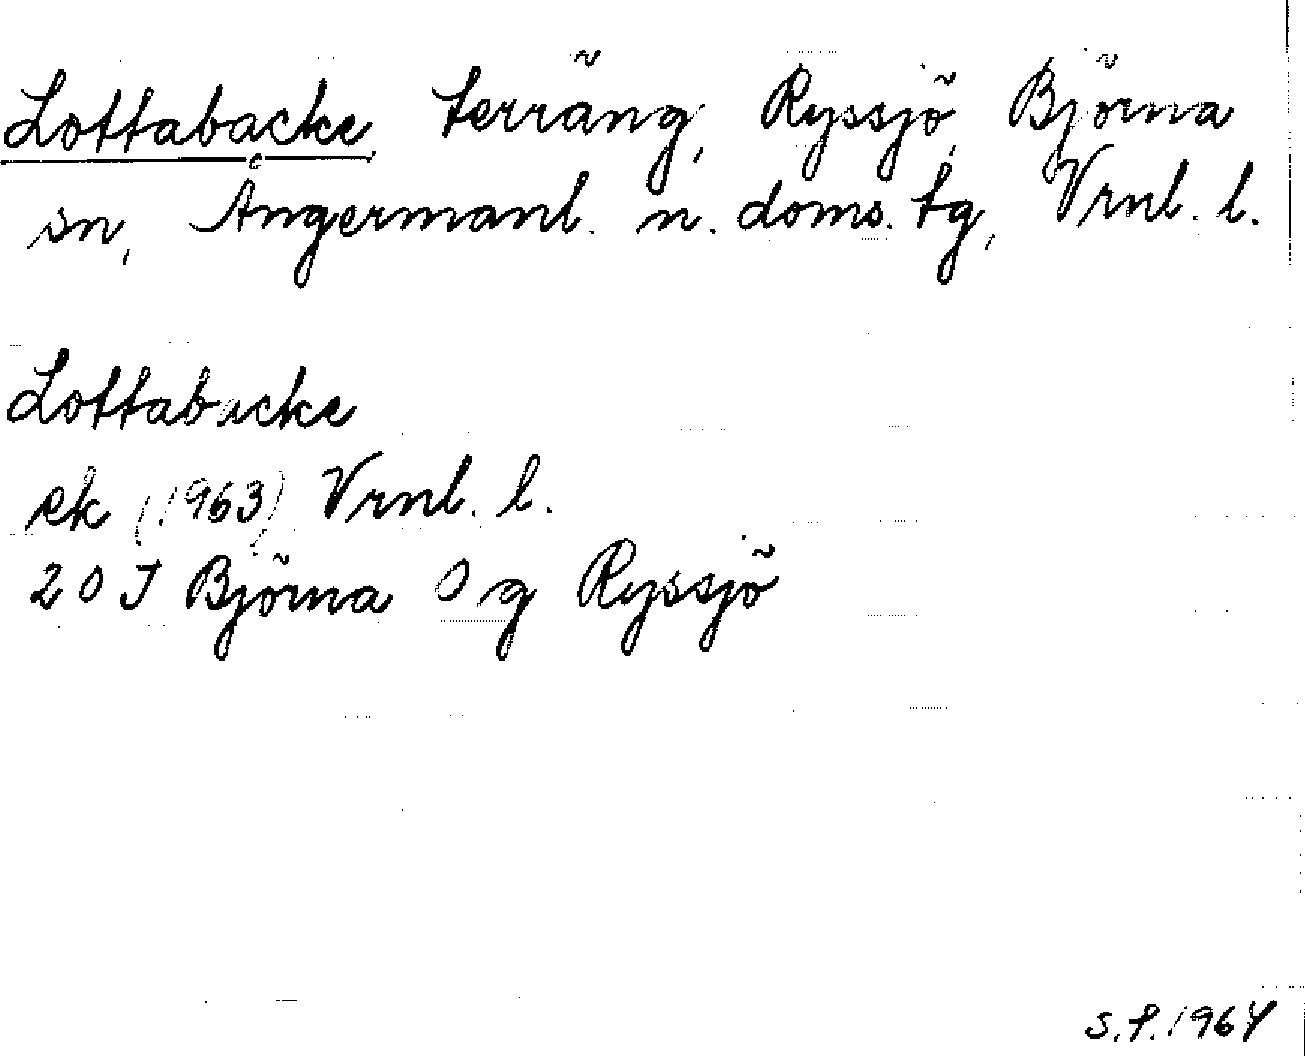 Lottabacke, terräng, Ryssjö, Björna
sn, Ångermanl. n. doms. tg, Vrnl. l.
Lottabacke
ek (1963) Vrnl. l.
20 J Björna 0 g Ryssjö
S.P. 1964